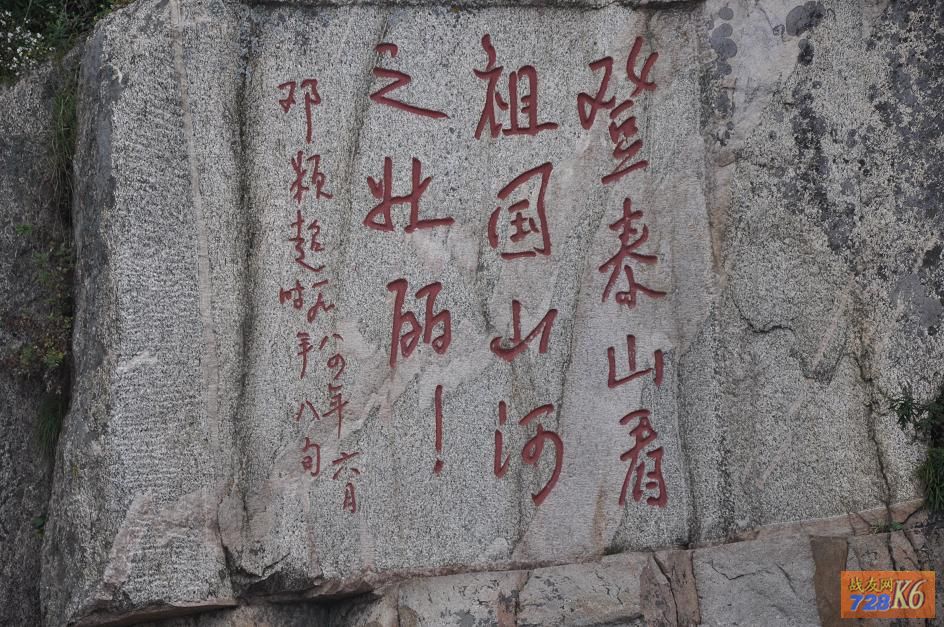 登泰山看
祖国山河
之壮丽！
邓颖超一九八四年六月
时年八旬
战友网
728K6